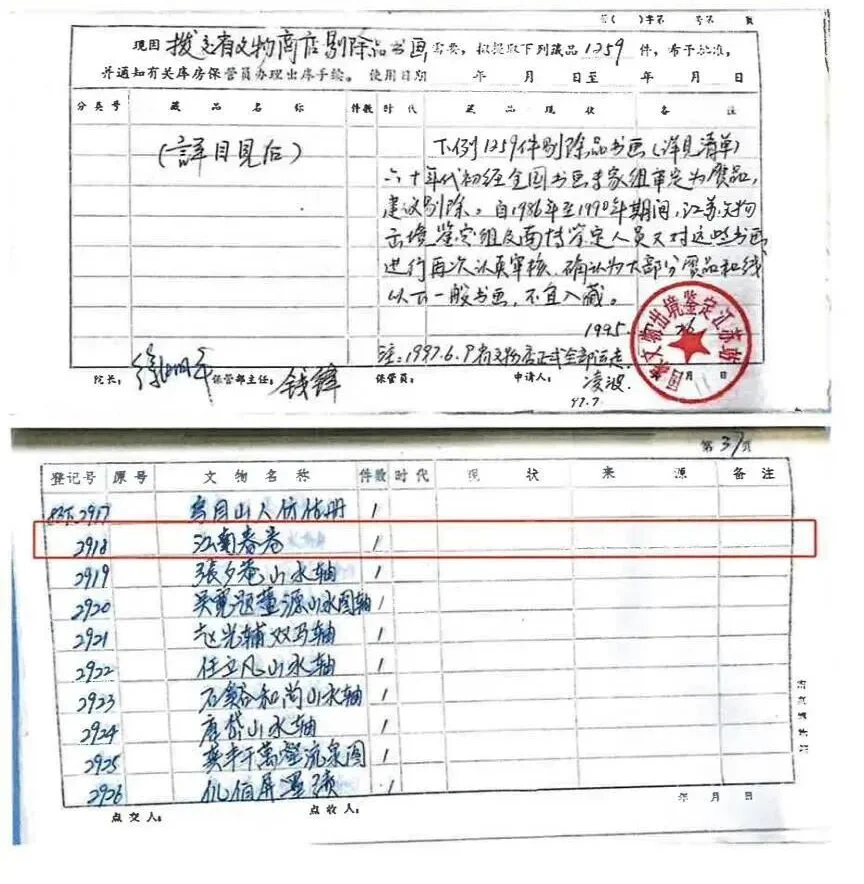 第( )字第 号第 页
现因 拨交省文物商店剔除品书画 需要,拟提取下列藏品 1259 件,希予批准,
并通知有关库房保管员办理出库手续。 使用日期 年 月 日至 年 月 日
分类号 藏品名称 件数 时代 藏品现状 备注
(詳目見后)
下例1259件剔除品书画(详見清单)
六十年代初经全国书画专家组审定为贋品,
建议剔除。自1986年至1990年期间,江苏文物
出境鉴定组及南博鉴定人员又对这些书画
进行再次认真审核,确认为大部分贋品和线
以下一般书画,不宜入藏。
1995. 26
国家文物出境鉴定江苏站
注:1997.6.9省文物店正式全部运走.
院长: 徐湖平 保管部主任: 钱锋 保管员: 申请人: 凌波. 月 日
97.7.
第 37 页
登记号 原号 文物名称 件数 时代 现状 来源 备注
2917 烏目山人仿古册 1
2918 江南春卷 1
2919 張夕菴山水轴 1
2920 吴寛題董源山水图轴 1
2921 赵光辅双马轴 1
2922 任立凡山水轴 1
2923 石谿和尚山水轴 1
2924 唐岱山水轴 1
2925 千萬壑流泉图 1
2926 1
点交人: 点收人: 年 月 日